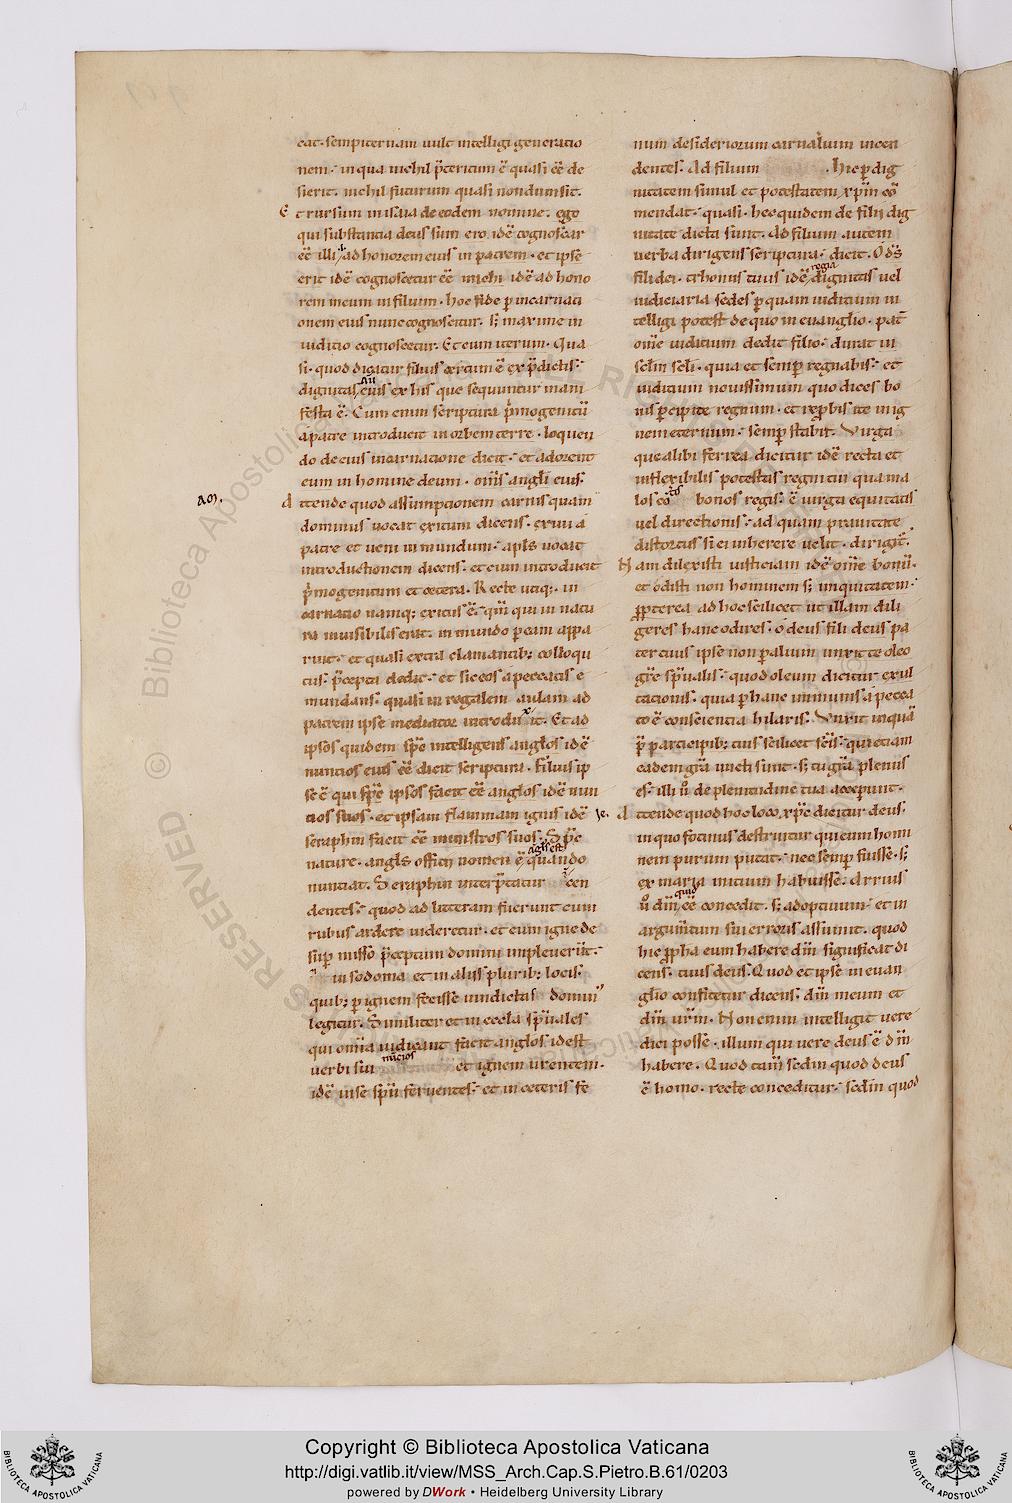 cat. sempiternam uult intelligi generatio
nem. in qua nichil p̄teritum ē quasi eē de
sierit. nichil futurum quasi nondum sit.
Et rursum in isaia de eodem nomine. ego
qui substantia deus sum ero. idē cognoscar
eē illi .i. ad honorem eius in patrem. et ipse
erit idē cognoscetur eē michi idē ad hono
rem meum in filium. hoc fide p incarnati
onem eius nunc cognoscitur. s; maxime in
iuditio cognoscetur. Et cum iterum. Qua
si. quod dicatur filius cerium ē ex p̄dictis.
dignitas au eius ex his que sequuntur mani
festa ē. Cum enim scriptura p̄mogenitū
a patre introducit in orbem terre. loquen
do de eius incarnatione dicit. et adorent
eum in homine deum. om̄s angli eius.
AM.
Attende quod assumptionem carnis quam
dominus uocat exitum dicens. exiui a
patre et ueni in mundum. apls uocat
introductionem dicens. et cum introducit
p̄mogenitum et cetera. Recte utiq;. in
carnatio namq; exitus ē. qm̄ qui in natu
ra inuisibilis erat. in mundo p eam appa
ruit. et quasi extra clamantib; colloqu
tus. p̄cepta dedit. et sic eos a peccatis e
mundans. quasi in regalem aulam ad
patrem ipse mediator introduxit. Et ad
ipsos quidem sp̄c intelligens anglos idē
nuncios eius eē dicit scriptura. Filius ip
se ē qui sp̄c ipsos facit eē anglos idē nun
tios suos. et ipsam flammam ignis idē
seraphin facit eē ministros suos. Sp̄c
nature. angls officii nomen ē agls est quando
nuntiat. Seraphin interp̄tatur īcen
dentes. quod ad litteram fuerunt cum
rubus ardere uideretur. et cum igne de
sup misso p̄ceptum domini impleuerūt.
in sodoma et in aliis plurib; locis.
quib; p ignem fecisse uindictas dominus
legitur. Similiter et in eccla sp̄uales
qui omīa iudicant facit anglos idest
uerbi sui nuncios et ignem urentem.
idē in se sp̄u feruentes. et in ceteris fe
num desideriorum carnalium incen
dentes. Ad filium . hic p dig
nitatem simul et potestatem xp̄m cō
mendat. quasi. hec quidem de filii dig
nitate dicta sunt. Ad filium autem
uerba dirigens scriptura. dicit. O ds
fili dei. thronus tuus idē regia dignitas uel
iudiciaria sedes p quam iuditium in
telligi potest de quo in euanglio. pat̄
om̄e iuditium dedit filio. durat in
sclm scli. quia et semp regnabis. et
iuditium nouissimum quo dices bo
nis pcipite regnum. et reprobis ite in ig
nem eternum. semp stabit. Virga
que alibi ferrea dicitur idē recta et
inflexibilis potestas regni tui qua ma
los cō bonos regis. ē uirga equitatis
uel directionis. ad quam prauitate
distortus si ei inherere uelit. dirigit̄.
Nam dilexisti iustitiam idē om̄e bonū.
et odisti non hominem s; iniquitatem.
ppterea ad hoc scilicet ut illam dili
geres hanc odires. o deus fili deus pa
ter tuus ipse non p alium unxit te oleo
gr̄e sp̄ualis. quod oleum dicitur exul
tationis. quia p hanc inmunis a pecca
to ē conscientia hilaris. Vnxit inquā
p̄ participib; tuis scilicet sc̄is. qui etiam
eadem gr̄a uncti sunt. s; tu gr̄a plenus
es. illi ū de plenitudine tua acceperunt.
Ie. Attende quod hoc loco xp̄c dicitur deus.
in quo fotinus destruitur qui eum homi
nem purum putat. nec semp fuisse. s;
ex maria initium habuisse. Arrius
ū dm̄ quid eē concedit. s; adoptiuum. et in
argum̄tum sui erroris assumit. quod
hic ppha eum habere dm̄ significat di
cens. tuus deus. Quod et ipse in euan
glio confitetur dicens. dm̄ meum et
dm̄ urm̄. Non enim intelligit uere
dici posse. illum qui uere deus ē dm̄
habere. Quod tam̄ scdm quod deus
ē homo. recte conceditur. scdm quod
Copyright © Biblioteca Apostolica Vaticana
http://digi.vatlib.it/view/MSS_Arch.Cap.S.Pietro.B.61/0203
powered by DWork • Heidelberg University Library